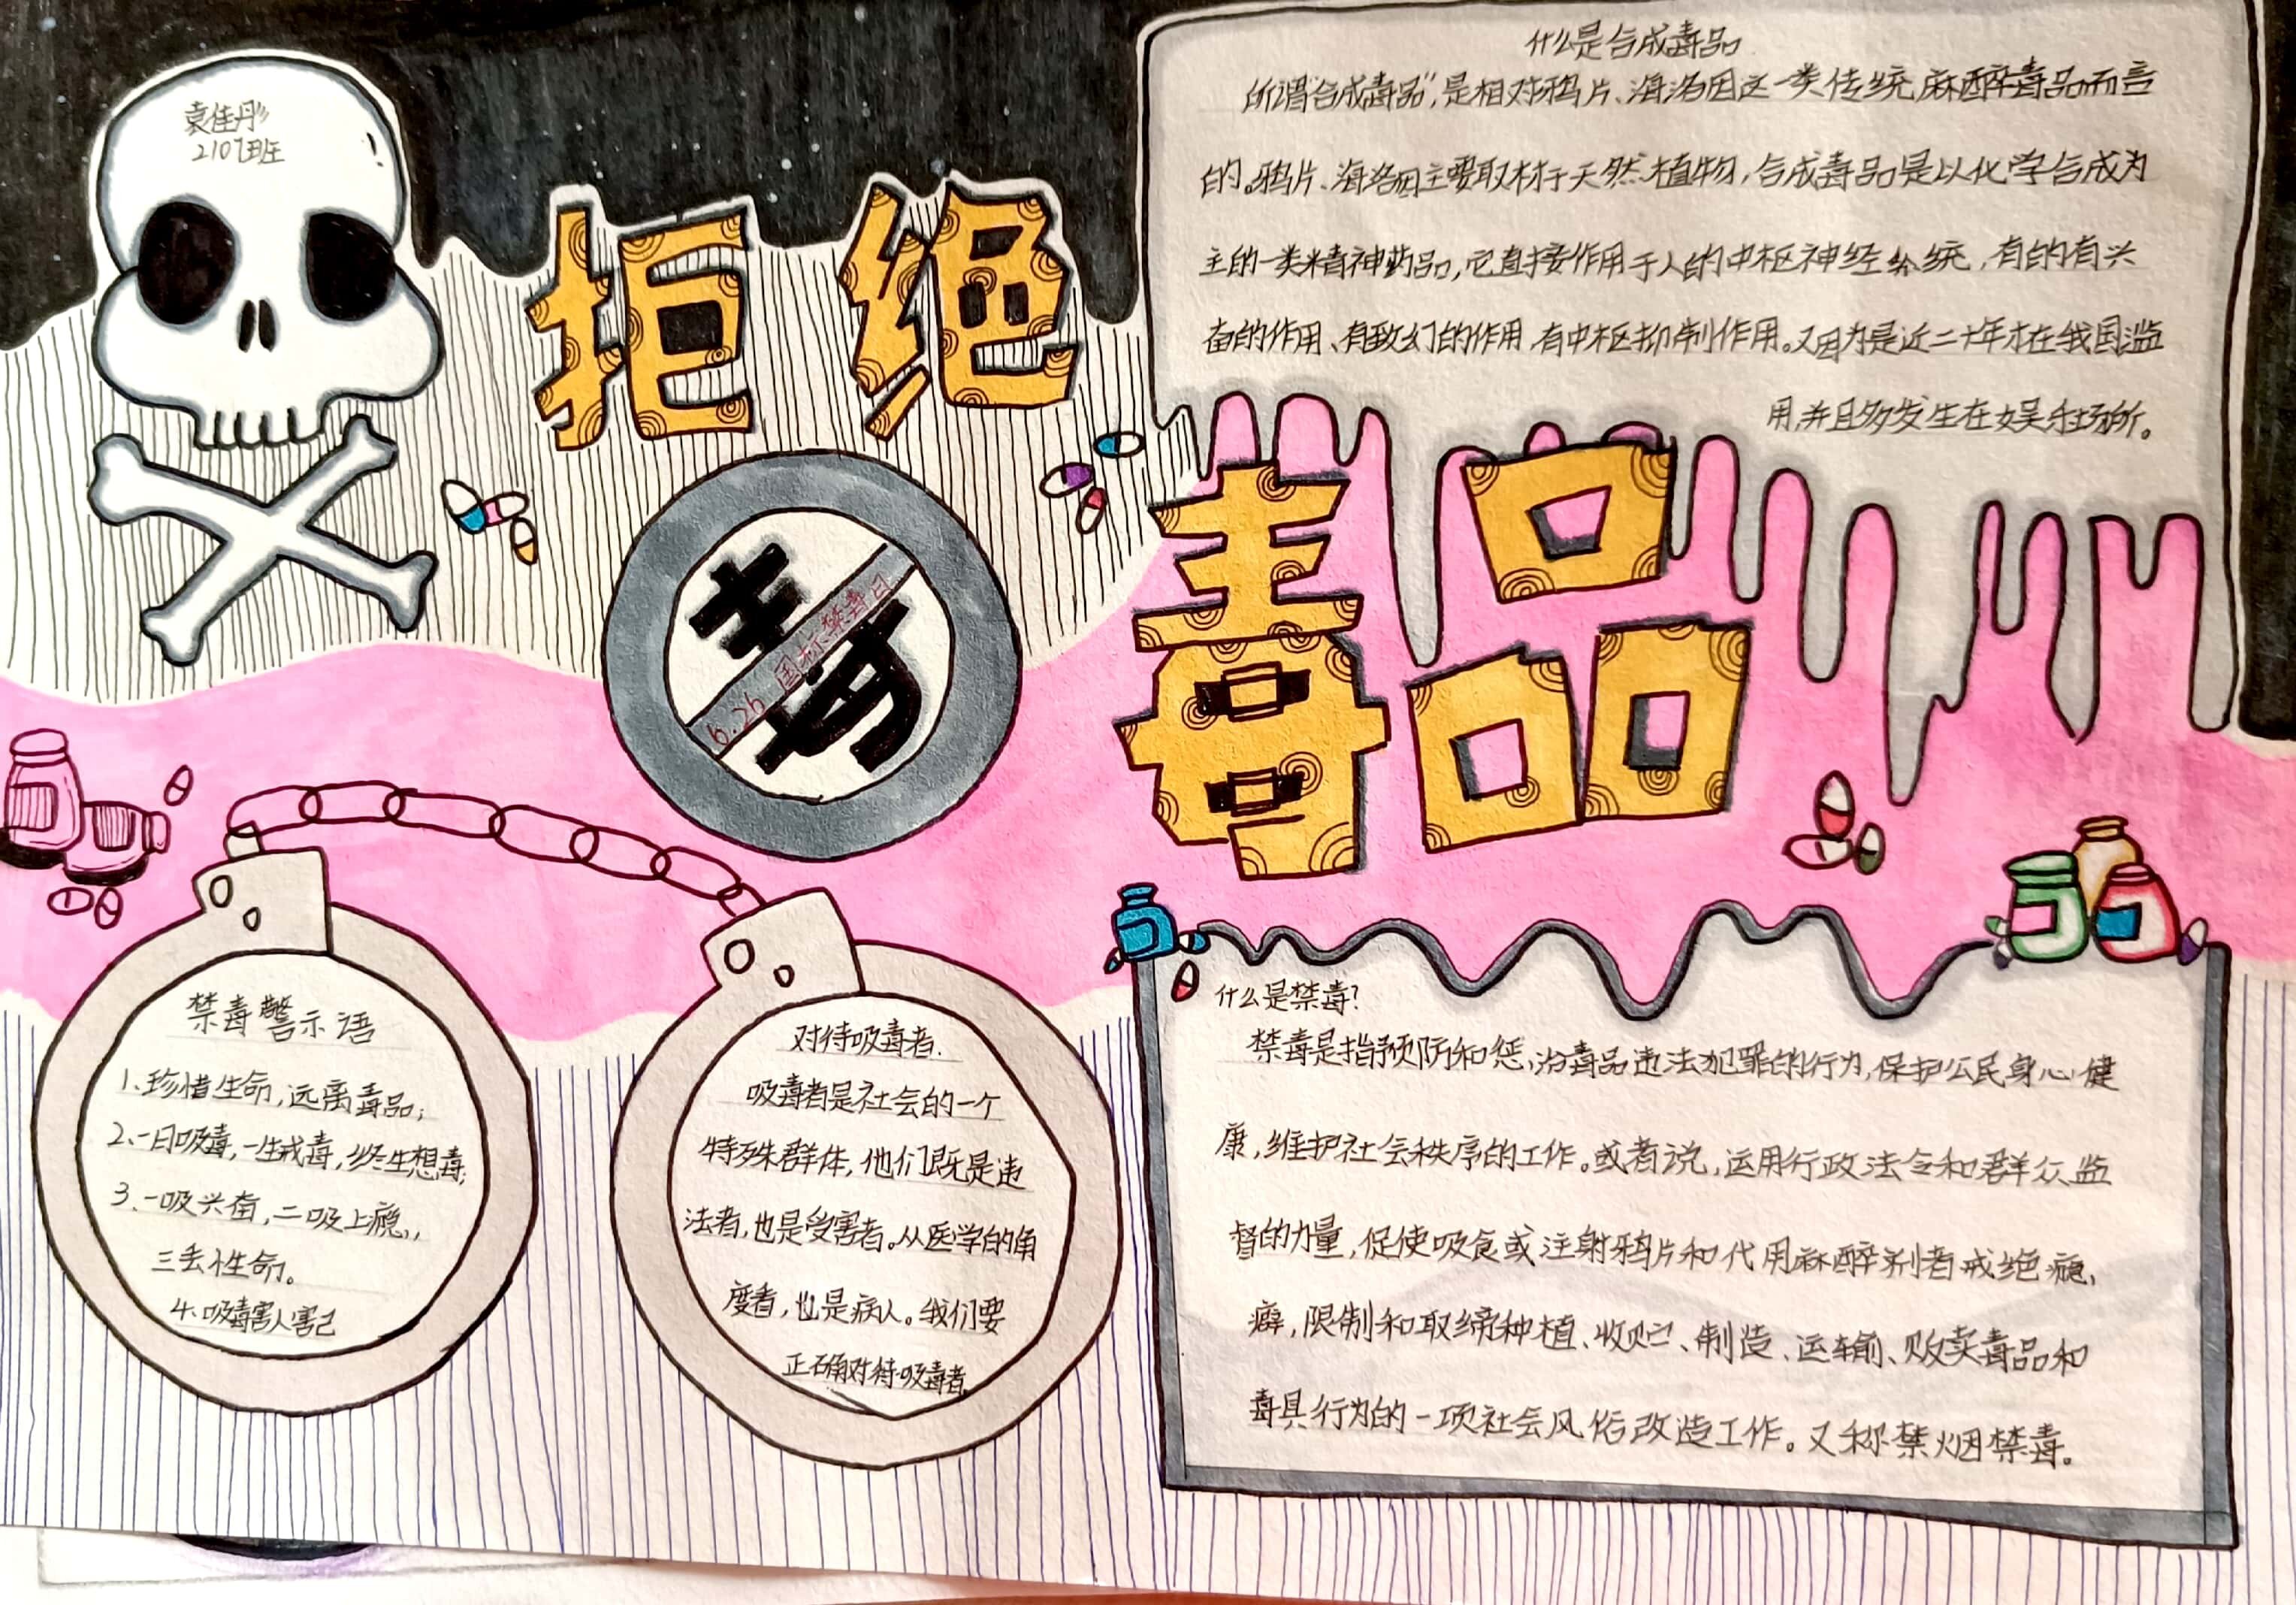 袁佳彤
2107班
拒绝
毒品
毒
6.26 国际禁毒日
什么是合成毒品
所谓"合成毒品",是相对鸦片、海洛因这一类传统麻醉毒品而言
的。鸦片、海洛因主要取材于天然植物,合成毒品是以化学合成为
主的一类精神药品,它直接作用于人的中枢神经给统,有的有兴
奋的作用、有致幻的作用,有中枢抑制作用。又因为是近二十年才在我国滥
用,并且多发生在娱乐场所。
禁毒警示语
1、珍惜生命,远离毒品;
2、一日吸毒,一生戒毒,终生想毒;
3、一吸兴奋,二吸上瘾,
三丢性命。
4、吸毒害人害己
对待吸毒者.
吸毒者是社会的一个
特殊群体,他们既是违
法者,也是受害者。从医学的角
度看,也是病人。我们要
正确对待吸毒者
什么是禁毒?
禁毒是指预防和惩治毒品违法犯罪的行为,保护公民身心健
康,维护社会秩序的工作。或者说,运用行政法令和群众监
督的力量,促使吸食或注射鸦片和代用麻醉剂者戒绝瘾
癖,限制和取缔种植、收贮、制造、运输、贩卖毒品和
毒具行为的一项社会风俗改造工作。又称禁烟禁毒。